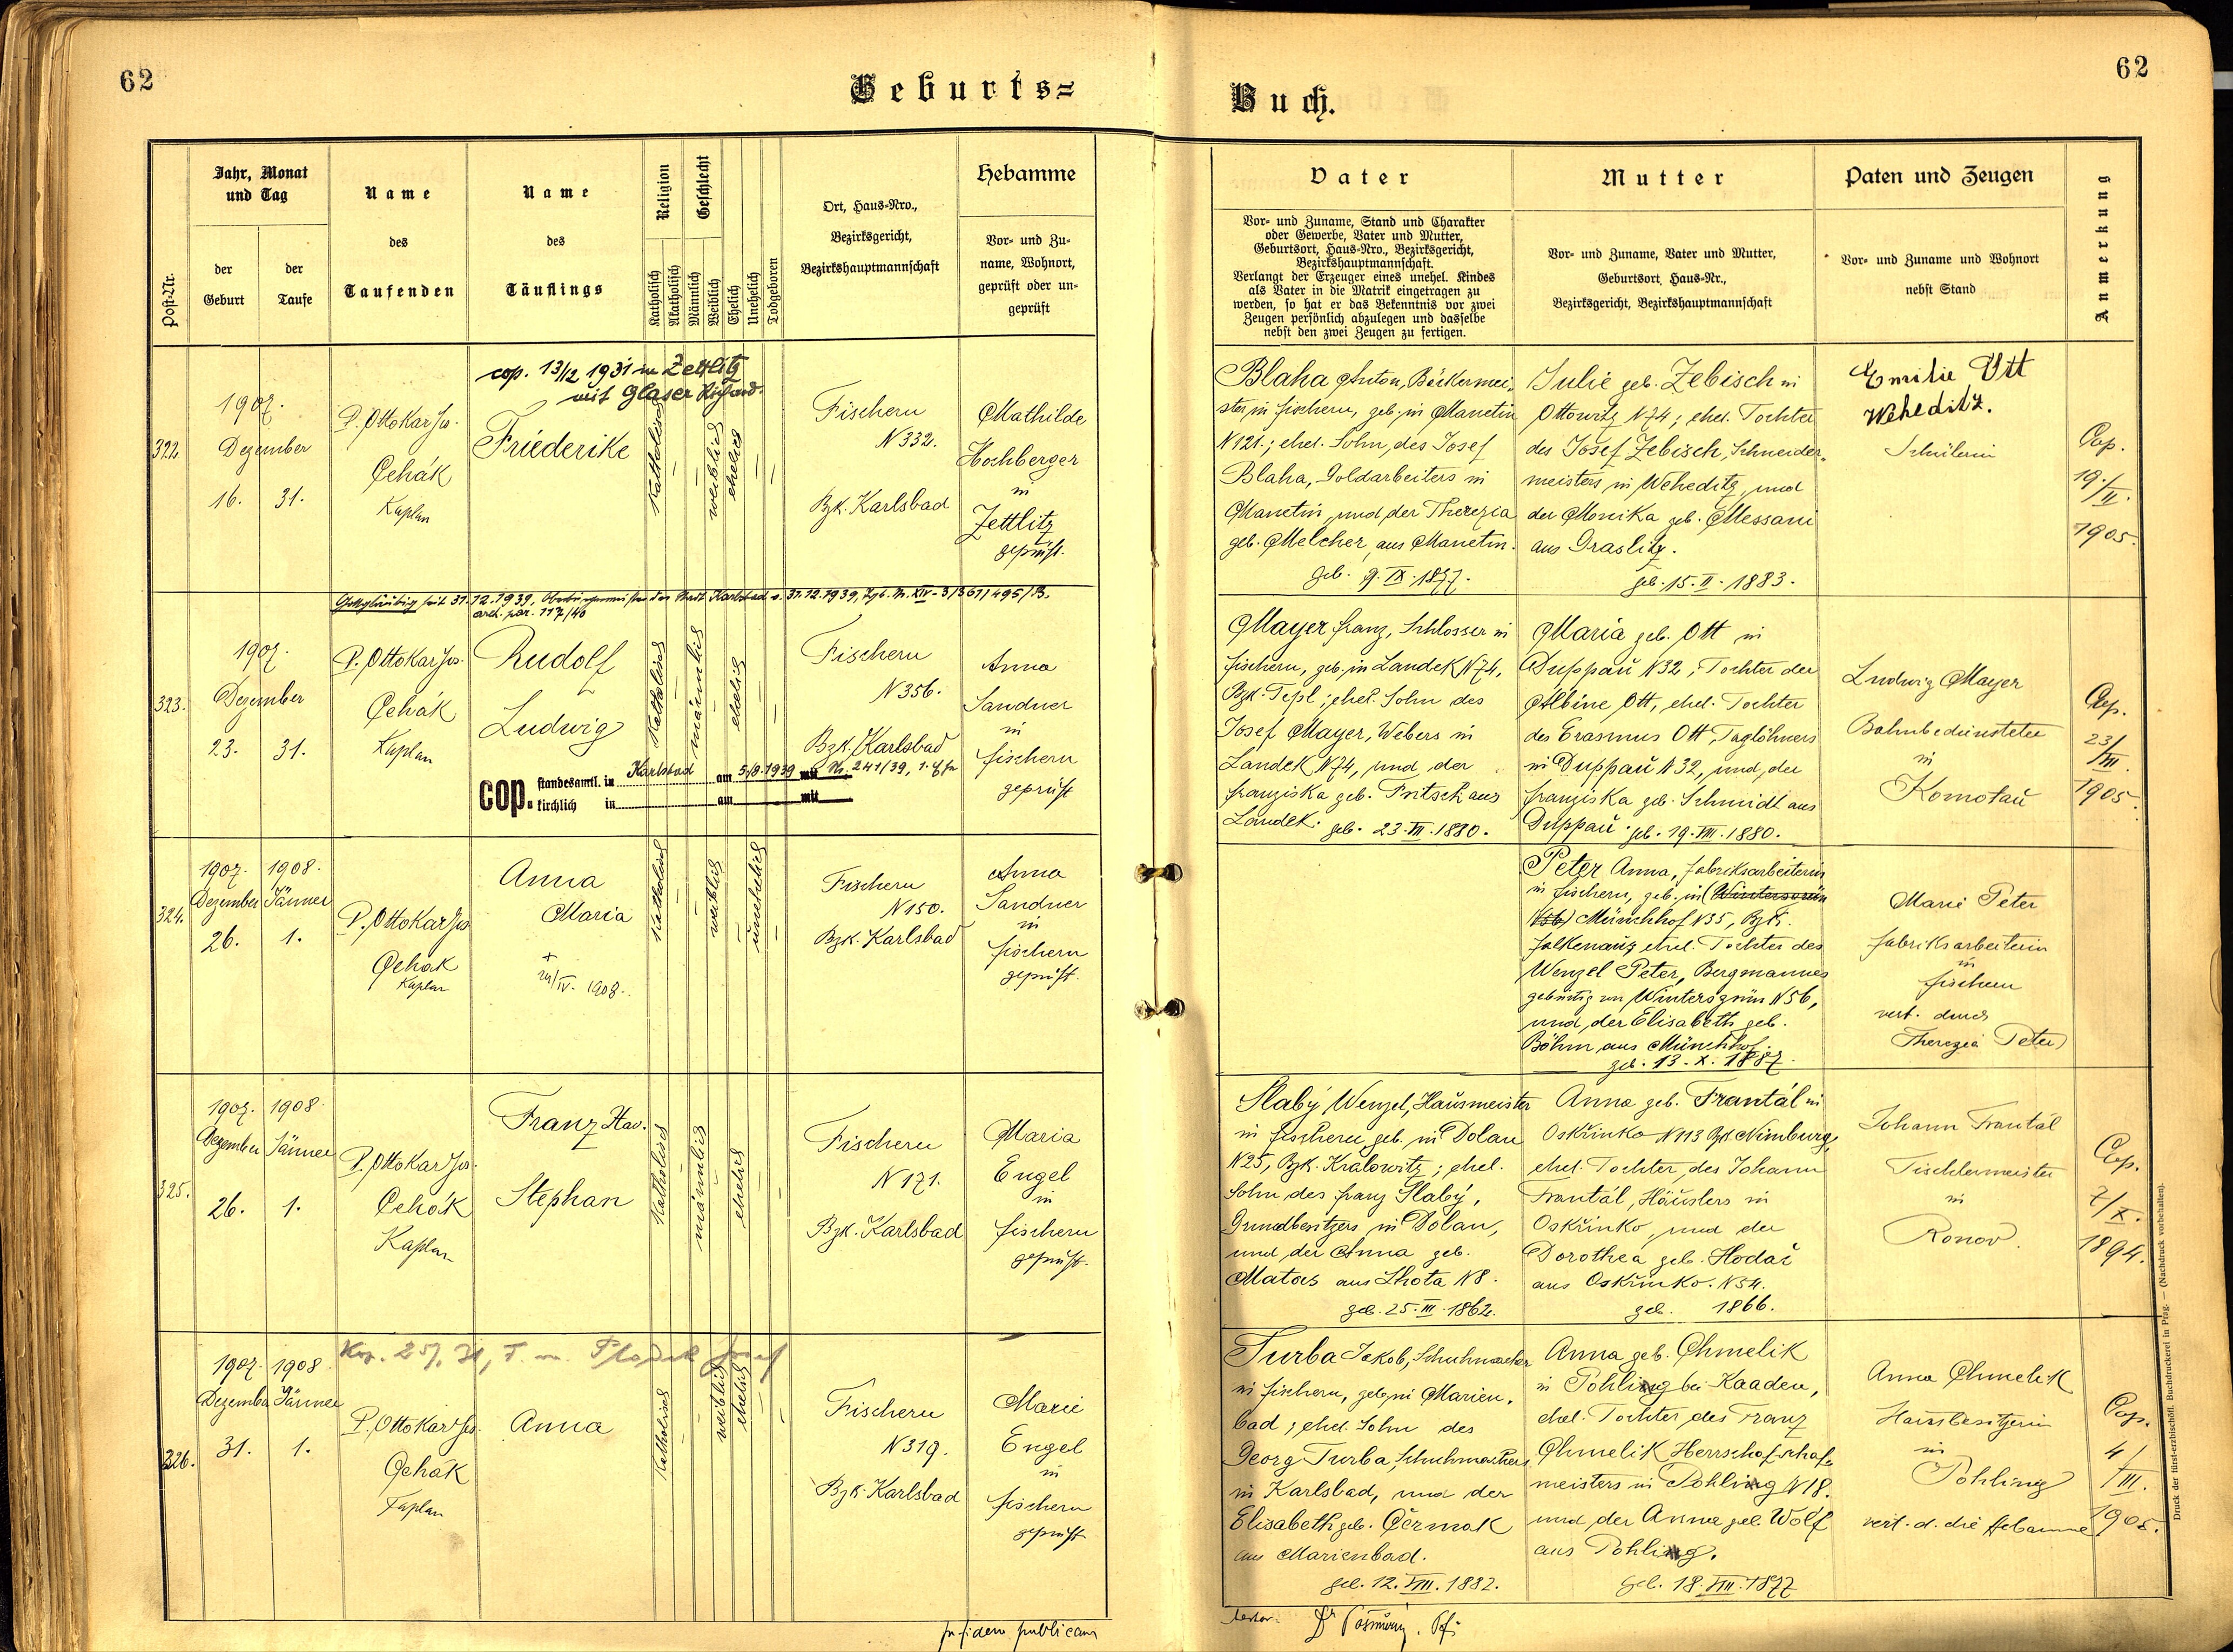 62
Geburts=
Jahr, Monat
und Tag
Name
Name
Religion
Geschlecht
Hebamme
Ort, Haus=Nro.,
Bezirksgericht,
Bezirkshauptmannschaft
des
des
Vor= und Zu=
name, Wohnort,
geprüft oder un=
geprüft
Post=Nr.
der
Geburt
der
Taufe
Taufenden
Täuflings
Katholisch
Akatholisch
Männlich
Weiblich
Ehelich
Unehelich
Todgeboren
cop. 13/12 1931 in Zettlitz
mit Glaser Richard.
322
1907.
Dezember
16. 31.
P. Ottokar Jos.
Čehák
Kaplan
Friederike
Katholisch
weiblich
ehelich
Fischern
N 332.
Bzk. Karlsbad
Mathilde
Hochberger
in
Zettlitz
geprüft.
Gottgläubig seit 31.12.1939, Oberbürgermeister der Stadt Karlsbad v. 31.12.1939, Zgb. Nr. XIV-3/361/495/B.
arch. par. 117/40
323.
1907.
Dezember
23. 31.
P. Ottokar Jos.
Čehák
Kaplan
Rudolf
Ludwig
Katholisch
männlich
ehelich
Fischern
N 356.
Bzk. Karlsbad
Anna
Sandner
in
Fischern
geprüft
cop. standesamtl. in Karlsbad am 5/8.1939 mit Nr. 241/39,
kirchlich in am mit
324.
1907. 1908.
Dezember Jänner
26. 1.
P. Ottokar Jos
Čehák
Kaplan
Anna
Maria
+
24/IV. 1908.
Katholisch
weiblich
unehelich
Fischern
N 150.
Bzk. Karlsbad
Anna
Sandner
in
Fischern
geprüft.
325.
1907. 1908.
Dezember Jänner
26. 1.
P. Ottokar Jos.
Čehák
Kaplan
Franz Xav.
Stephan
Katholisch
männlich
ehelich
Fischern
N 171.
Bzk. Karlsbad
Maria
Engel
in
Fischern
geprüft.
326.
1907. 1908.
Dezember Jänner
31. 1.
P. Ottokar Jos.
Čehák
Kaplan
Anna
Katholisch
weiblich
ehelich
Fischern
N 319.
Bzk. Karlsbad
Marie
Engel
in
Fischern
geprüft
In fidem publicam
62
Buch.
Vater
Mutter
Paten und Zeugen
Anmerkung
Vor= und Zuname, Stand und Charakter
oder Gewerbe, Vater und Mutter,
Geburtsort, Haus=Nro., Bezirksgericht,
Bezirkshauptmannschaft.
Verlangt der Erzeuger eines unehel. Kindes
als Vater in die Matrik eingetragen zu
werden, so hat er das Bekenntnis vor zwei
Zeugen persönlich abzulegen und dasselbe
nebst den zwei Zeugen zu fertigen.
Vor= und Zuname, Vater und Mutter,
Geburtsort, Haus=Nr.,
Bezirksgericht, Bezirkshauptmannschaft
Vor= und Zuname und Wohnort
nebst Stand
Blaha Anton, Bäckermei=
ster in Fischern, geb. in Manetin
N 121.; ehel. Sohn des Josef
Blaha, Goldarbeiters in
Manetin und der Therezia
geb. Melcher, aus Manetin.
geb. 9. IX. 1877.
Julie geb. Zebisch in
Ottowitz N 74; ehel. Tochter
des Josef Zebisch, Schneider=
meisters in Weheditz, und
der Monika geb. Messani
aus Graslitz.
geb. 15. II. 1883.
Emilie Ott
Weheditz.
Schülerin
Cop.
19./II.
1905.
Mayer Franz, Schlosser in
Fischern, geb. in Landek N 74,
Bzk. Tepl; ehel. Sohn des
Josef Mayer, Webers in
Landek N 74, und der
Franziska geb. Fritsch aus
Landek. geb. 23. VII. 1880.
Maria geb. Ott in
Duppau N 32; Tochter der
Albine Ott, ehel. Tochter
des Erasmus Ott, Taglöhners
in Duppau N 32, und der
Franziska geb. Schmidt aus
Duppau. geb. 19. VIII. 1880.
Ludwig Mayer
Bahnbediensteter
in
Komotau
Cop.
23/VII.
1905.
Peter Anna, Fabriksarbeiterin
in Fischern, geb. in (Wintersgrün
N 56) Münchhof N 35, Bzk.
Falkenau; ehel. Tochter des
Wenzel Peter, Bergmannes
gebürtig von Wintersgrün N 56,
und der Elisabeth geb.
Böhm aus Münchhof.
geb. 13. X. 1887.
Marie Peter
Fabriksarbeiterin
in
Fischern
vert. durch
Therezia Peter
Slabý Wenzel, Hausmeister
in Fischern geb. in Dolan
N 25, Bzk. Kralowitz; ehel.
Sohn des Franz Slabý,
Grundbesitzers in Dolan,
und der Anna geb.
Matas aus Lhota N 8.
geb. 25. III. 1862.
Anna geb. Frantál in
Oskřinko N 113 Bzk. Nimburg,
ehel. Tochter des Johann
Frantál, Häuslers in
Oskřinko, und der
Dorothea geb. Hodač
aus Oskřinko. N 54.
geb. 1866.
Johann Frantál
Tischlermeister
in
Ronov.
Cop.
7/X.
1894.
Turba Jakob, Schuhmacher
in Fischern, geb. in Marien=
bad; ehel. Sohn des
Georg Turba, Schuhmachers
in Karlsbad, und der
Elisabeth geb. Čermak
aus Marienbad.
geb. 12. VIII. 1882.
Anna geb. Chmelik
in Pohling bei Kaaden,
ehel. Tochter des Franz
Chmelik Herrschaf. schaf=
meisters in Pohling N 18.
und der Anna geb. Wolf
aus Pohling.
geb. 18. VIII. 1877
Anna Chmelik
Hausbesitzerin
in
Pohling
vert. d. die Hebamme
Cop.
4/VIII.
1905.
Druck der fürst-erzbischöfl. Buchdruckerei in Prag. — (Nachdruck vorbehalten).